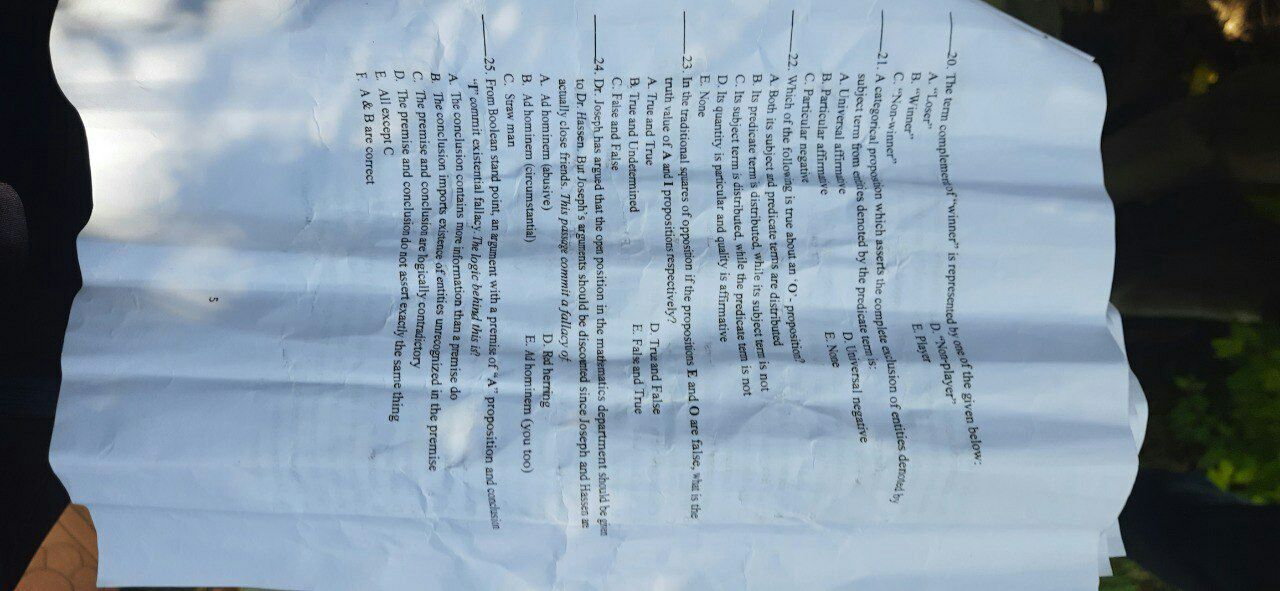 20. The term complement of "winner" is represented by one of the given below:
A. "Loser" D. "Non-player"
B. "Winner" E. Player
C. "Non-winner"
21. A categorical proposition which asserts the complete exclusion of entities denoted by
subject term from entities denoted by the predicate term is:
A. Universal affirmative D. Universal negative
B. Particular affirmative E. None
C. Particular negative
22. Which of the following is true about an 'O'- proposition?
A. Both its subject and predicate terms are distributed
B. Its predicate term is distributed, while its subject term is not
C. Its subject term is distributed, while the predicate term is not
D. Its quantity is particular and quality is affirmative
E. None
23. In the traditional squares of opposition if the propositions E and O are false, what is the
truth value of A and I propositions respectively?
A. True and True D. True and False
B. True and Undetermined E. False and True
C. False and False
24. Dr. Joseph has argued that the open position in the mathematics department should be given
to Dr Hassen. But Joseph's arguments should be discounted since Joseph and Hassen are
actually close friends. This passage commit a fallacy of
A. Ad hominem (abusive) D. Red herring
B. Ad hominem (circumstantial) E. Ad hominem (you too)
C. Straw man
25. From Boolean stand point, an argument with a premise of "A" proposition and conclusion
"I" commit existential fallacy. The logic behind this is?
A. The conclusion contains more information than a premise do
B. The conclusion imports existence of entities unrecognized in the premise
C. The premise and conclusion are logically contradictory
D. The premise and conclusion do not assert exactly the same thing
E. All except C
F. A & B are correct
5